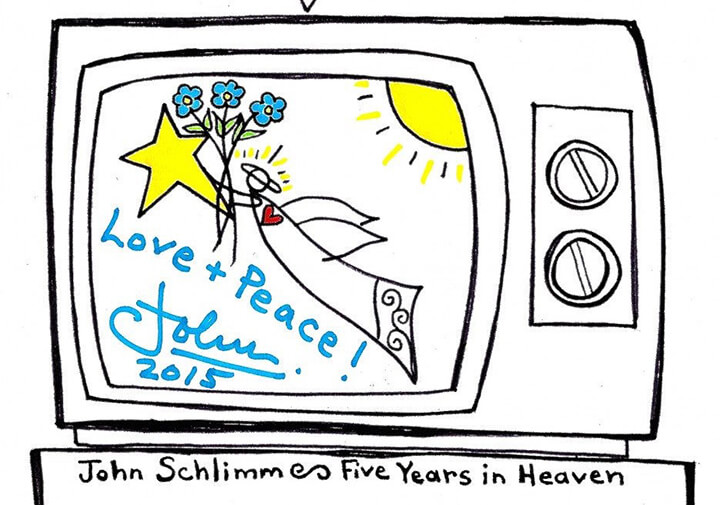 Love + Peace!
John
2015
John Schlimm Five Years in Heaven